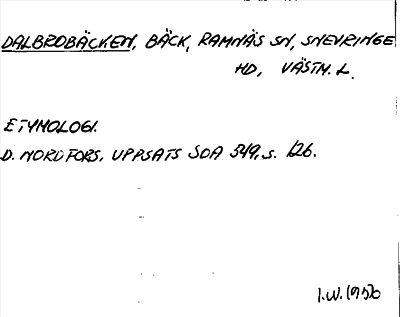 DALBROBÄCKEN, BÄCK, RAMNÄS SN, SNEVRINGE
HD, VÄSTM. L.
ETYMOLOGI.
D. NORDFORS, UPPSATS SOA 549, s. 126.
I.W. (1950)